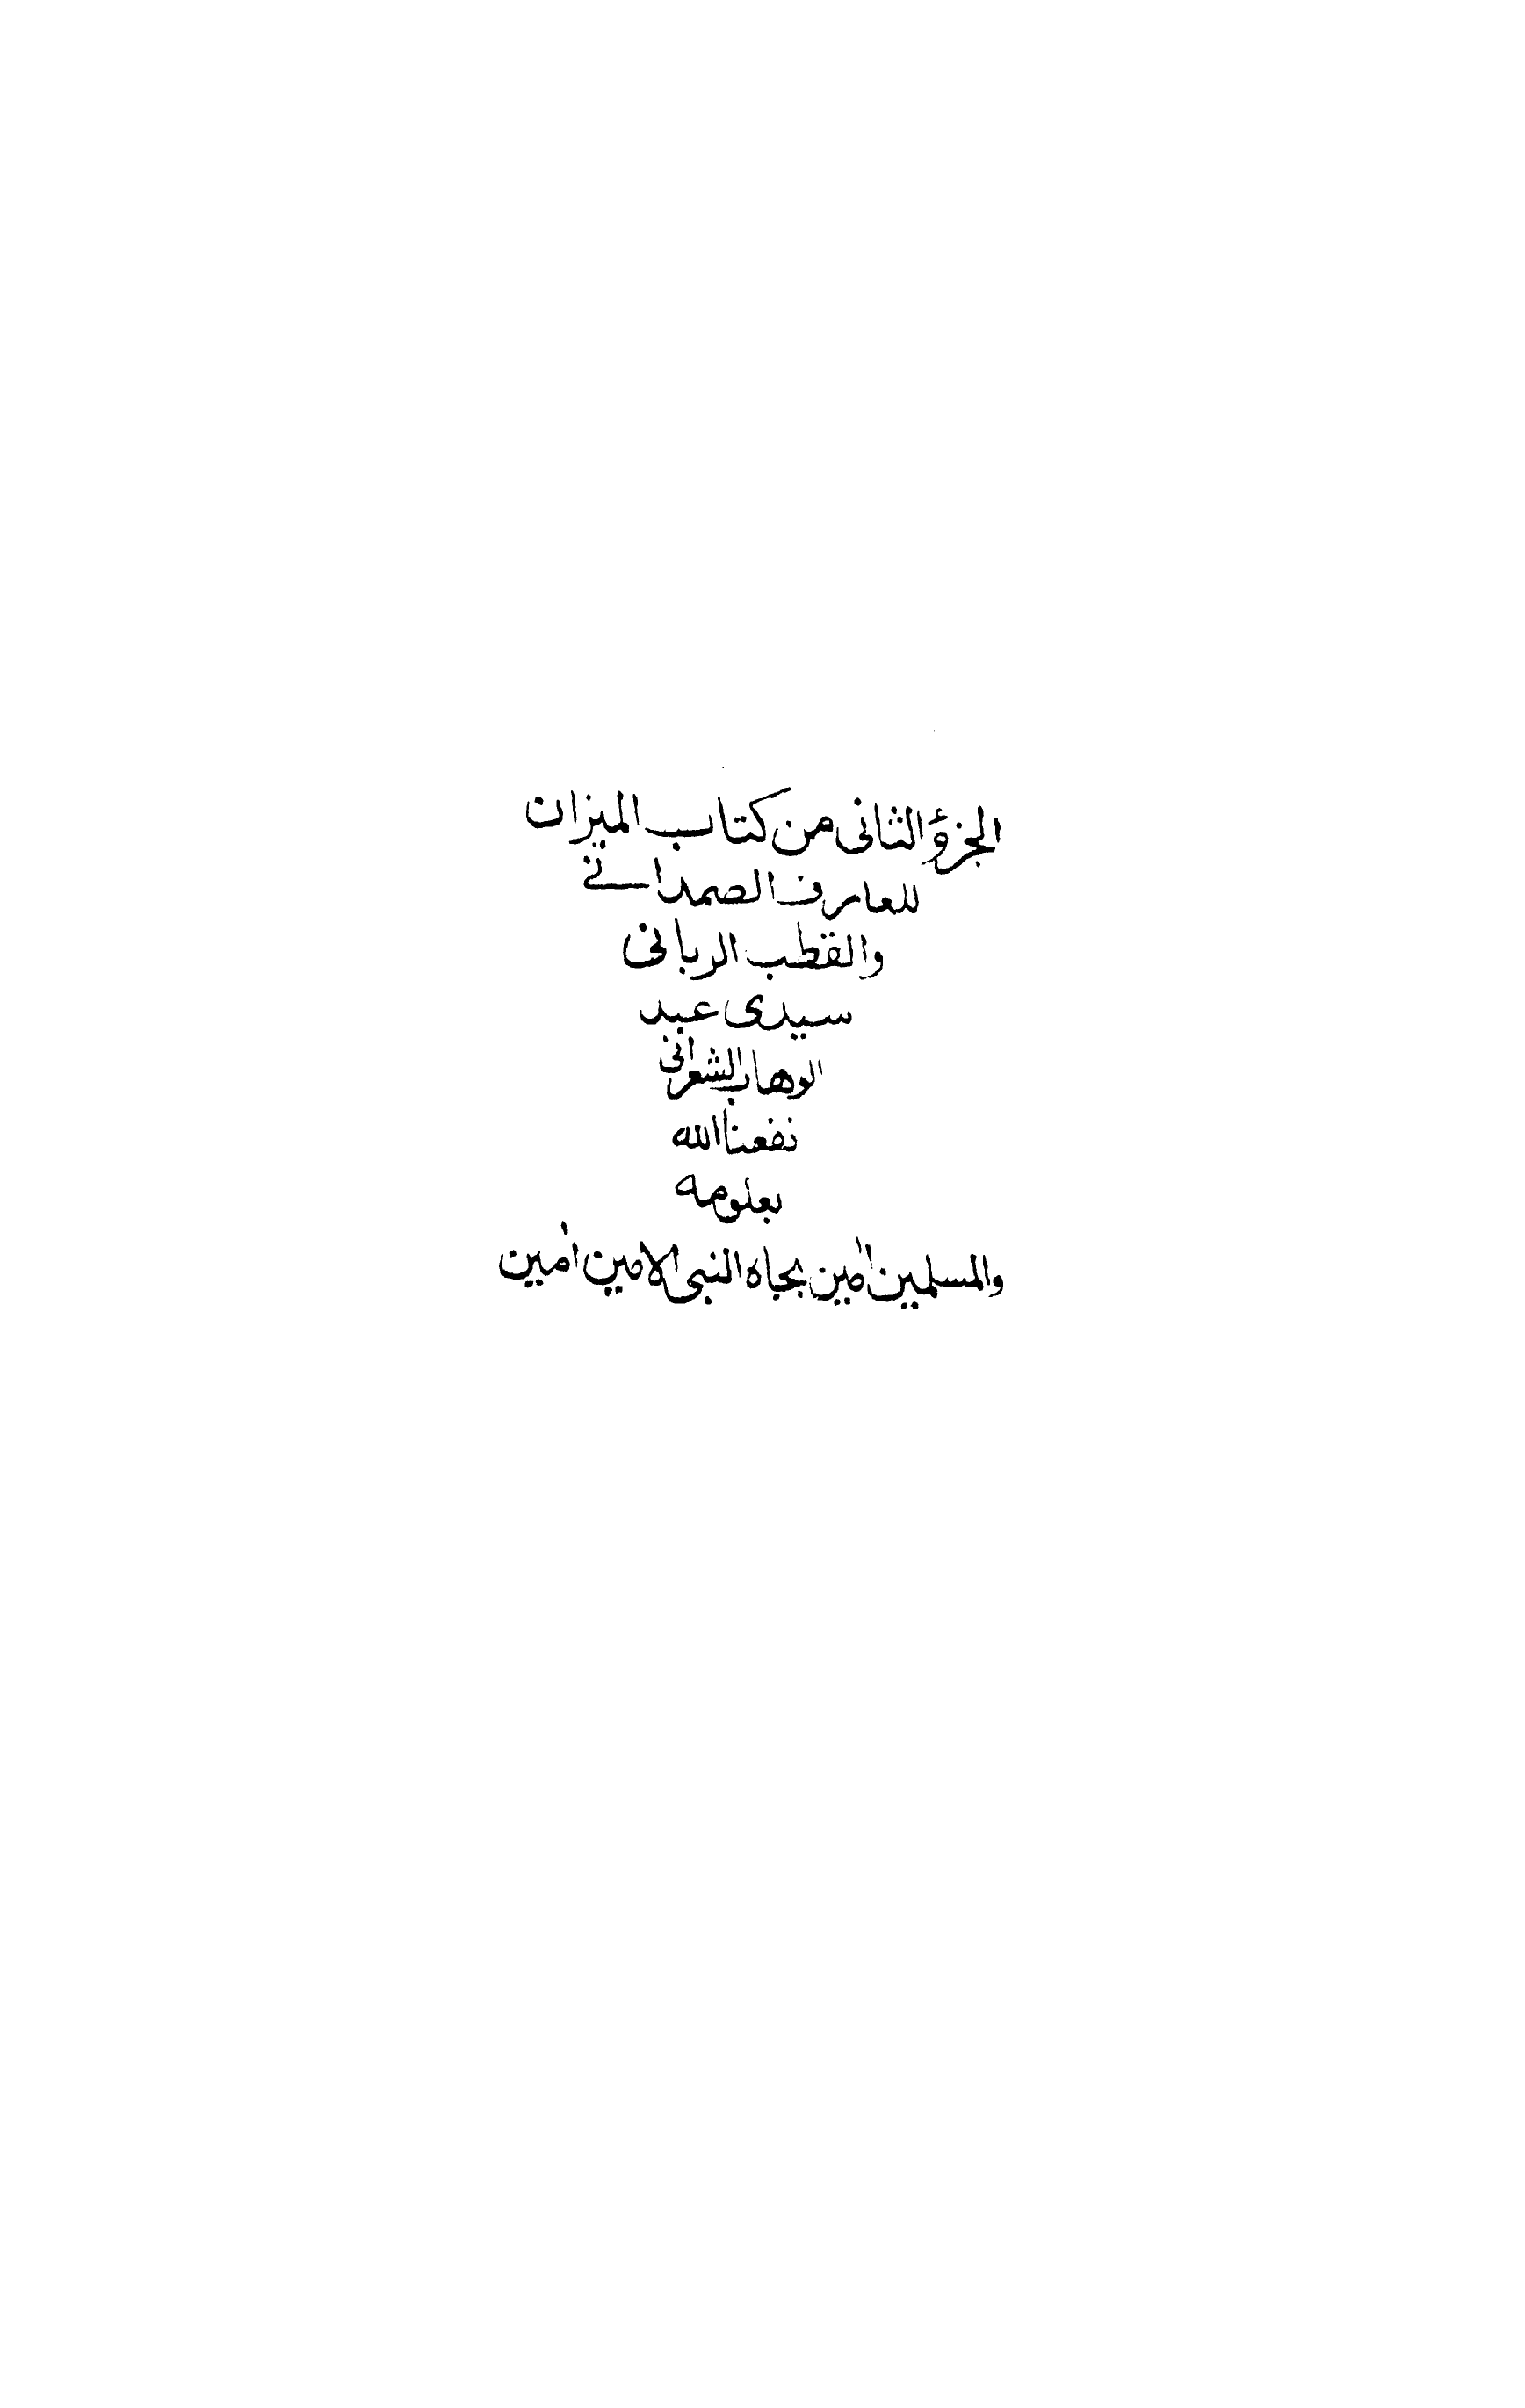 الجزؤ الثانى من كتاب الميزان
للعارف الصمدانى
والقطب الربانى
سيدى عبد
الوهاب الشعرانى
نفعنا الله
بعلومه
والمسلمين اٰمين بجاه النبى الامين اٰمين